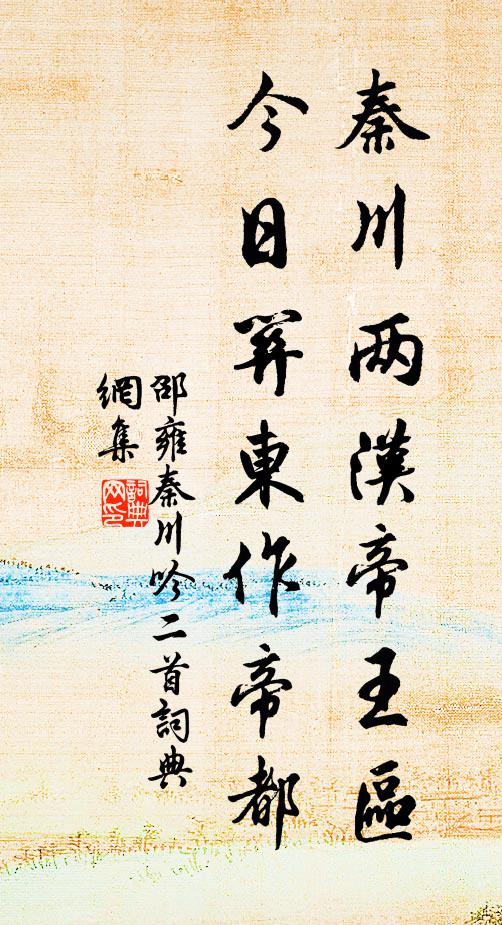 秦川两漢帝王區
今日関東作帝都
邵雍秦川吟二首詞典
網集
詞典
网印